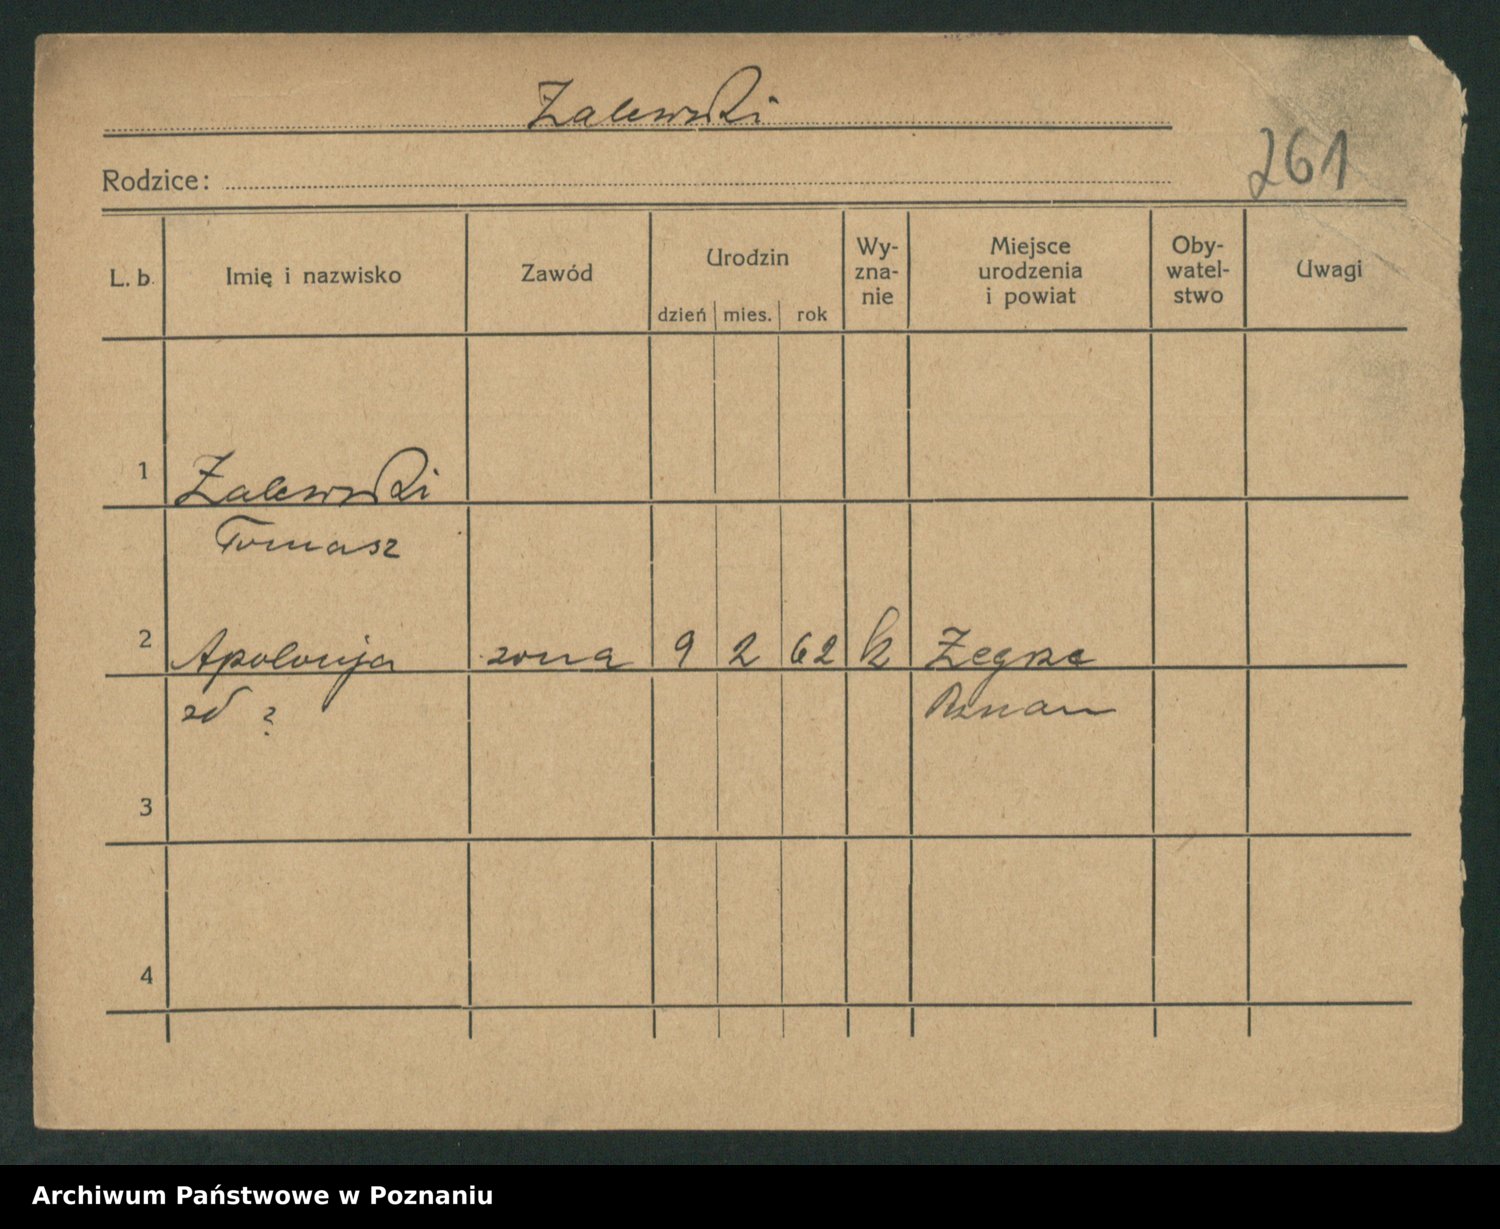 Zalewski
261
Rodzice:
L. b. Imię i nazwisko Zawód Urodzin dzień mies. rok Wy-zna-nie Miejsce urodzenia i powiat Oby-watel-stwo Uwagi
1 Zalewski
Tomasz
2 Apolonja żona 9 2 62 k Zegrze
zd ? Poznań
3
4
Archiwum Państwowe w Poznaniu